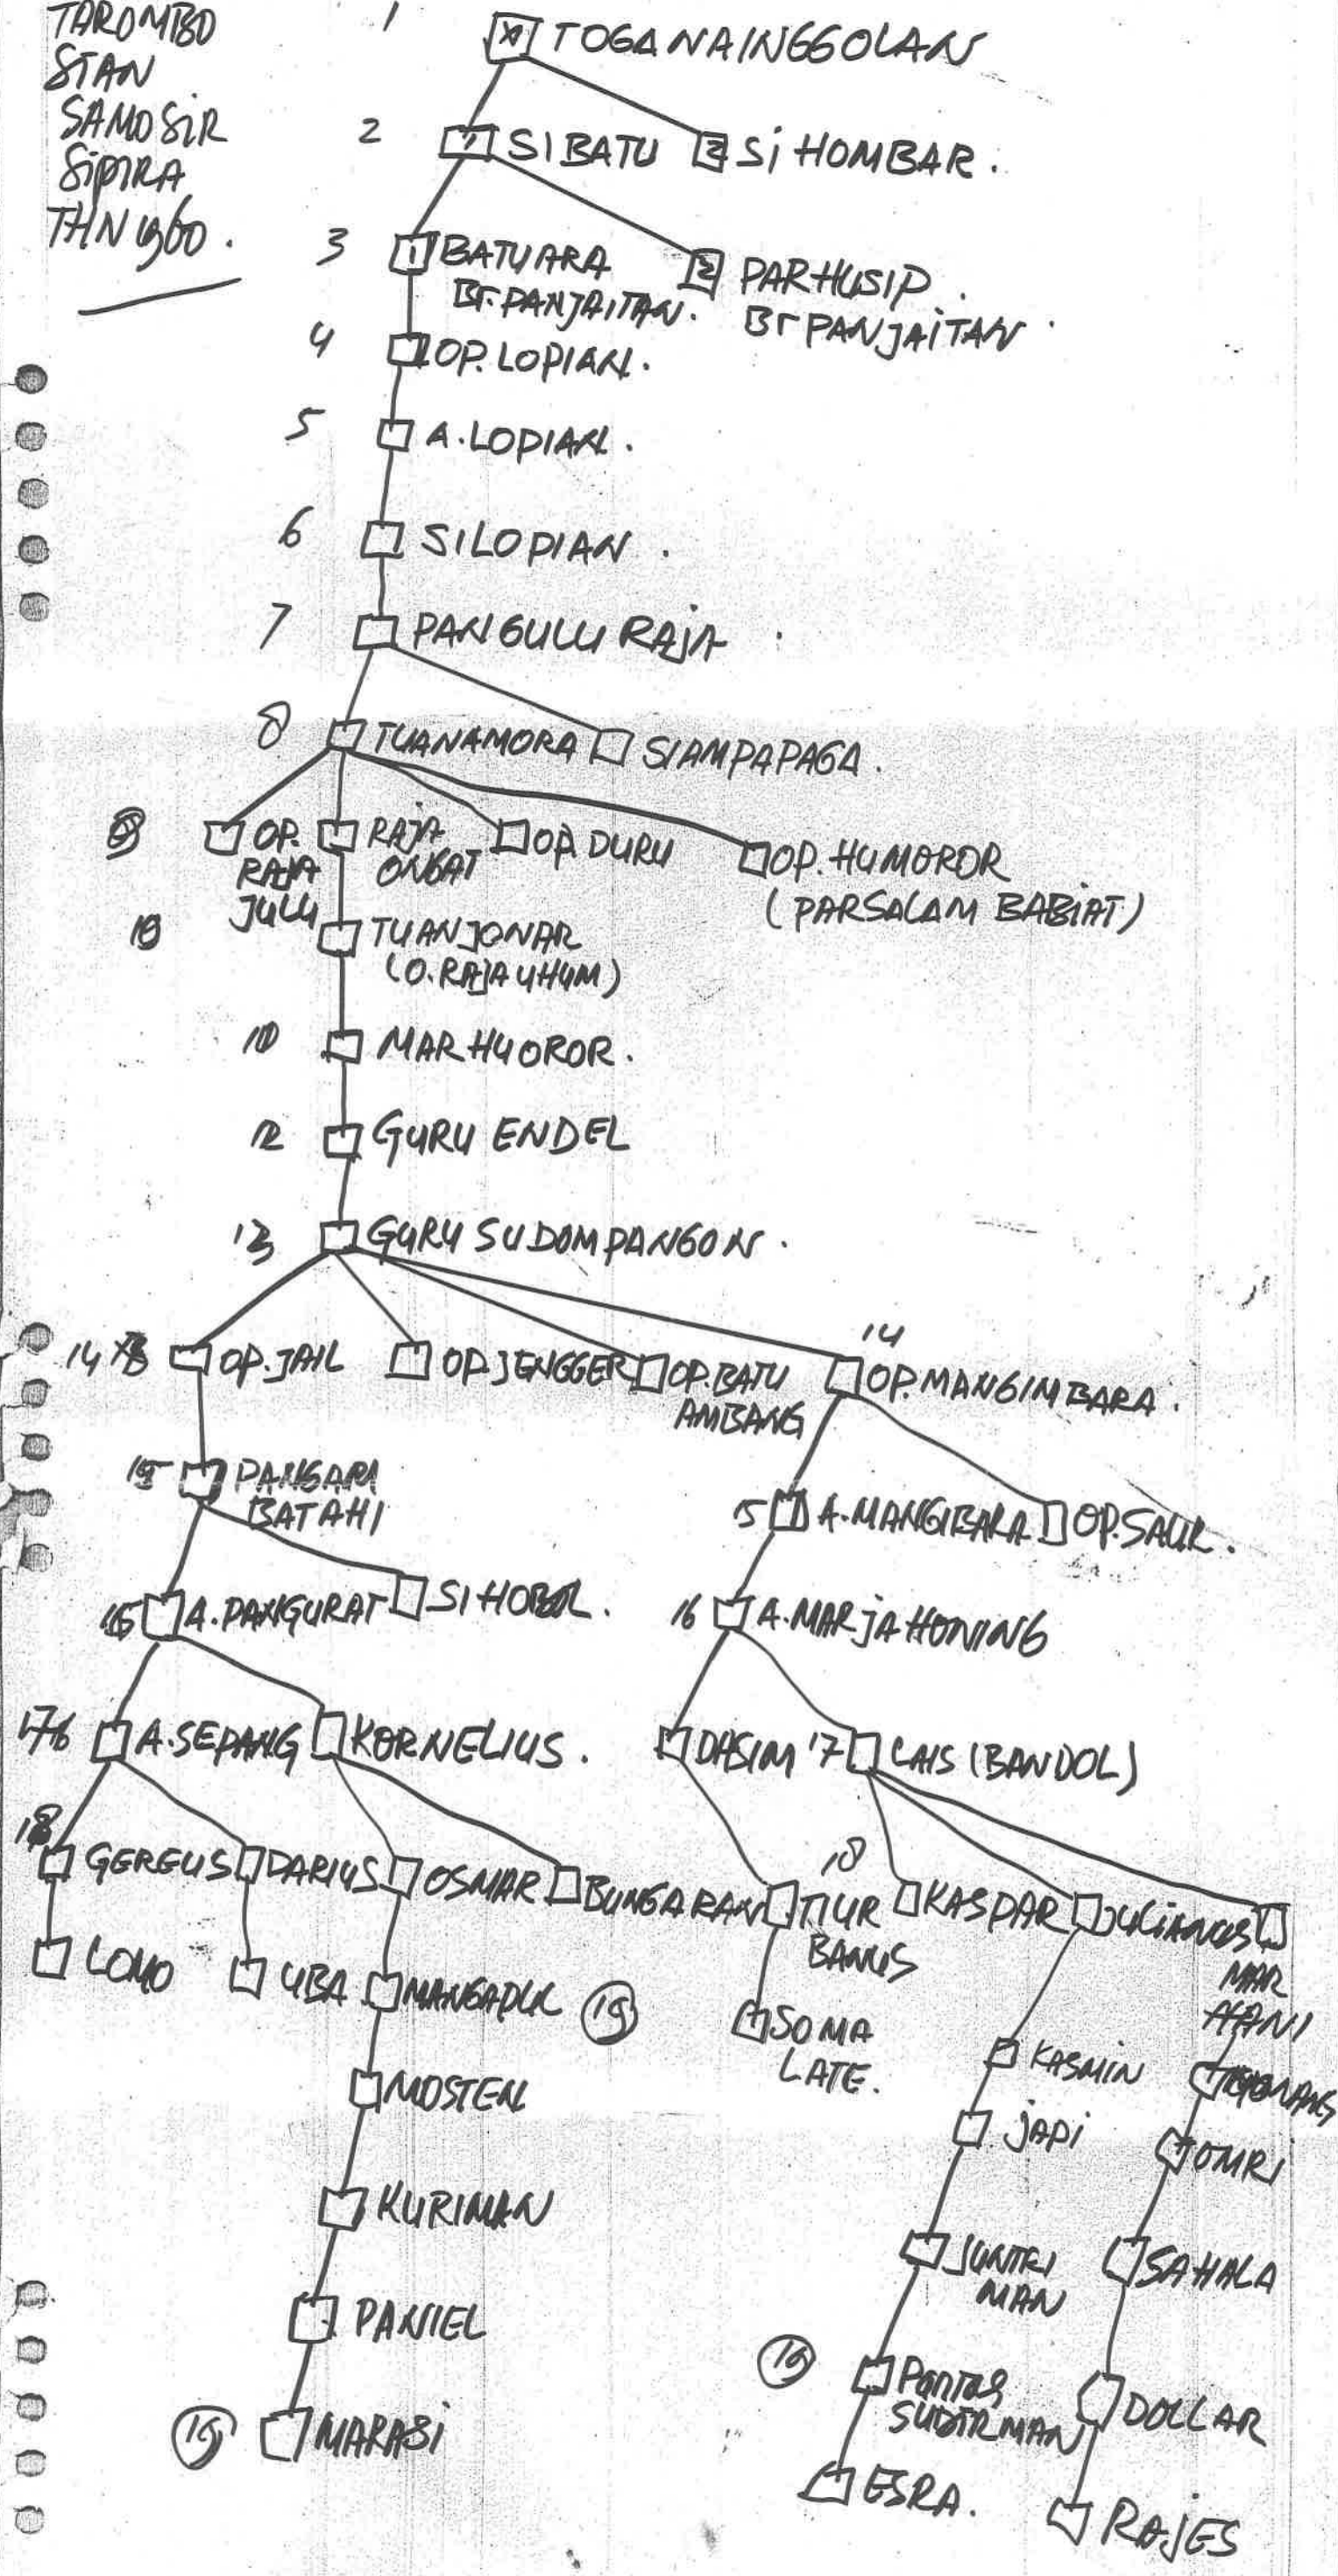 TAROMBO
STAN
SAMOSIR
SIPIRA
THN 1960.
1 TOGA NAINGGOLAN
2 1 SIBATU 2 SiHOMBAR.
3 1 BATUARA 2 PARHUSIP.
Br.PANJAITAN. Br PANJAITAN
4 OP.LOPIAN.
5 A.LOPIAN.
6 SILOPIAN.
7 PANGULU RAjA
8 TUANAMORA SIAMPAPAGA.
OP. RAJA OP.DURU OP.HUMOROR
RAJA ONGGAT (PARSALAM BABiAT)
JULU
10 TUANJONAR
(O.RAJA UHUM)
10 MARHUOROR.
12 GURU ENDEL
13 GURU SUDOMPANGON.
14 OP.JAIL OP.JENGGER OP.BATU 14 OP.MANGIMBARA.
AMBANG
15 PANGARI
BATAHI
15 A.MANGIBARA OP.SAUR.
16 A.PANGURAT SIHOBOL. 16 A.MARjAHONING
17 A.SEPANG KORNELIUS. DASIM 17 CAIS (BANDOL)
18 GEREUS DARIUS OSMAR BUNGARAN TIUR 18 KASPAR JULIANUS MAR
BANUS HANI
LOMO UBA MANGAPUL 19 SOMA
LATE.
KASMIN
MOSTEN jAPi TOMRI
KURIMAN JUNTRI SAHALA
MAN
PANIEL 19 Pantas DOLLAR
SUDIRMAN
19 MARASi ESRA. RAjES